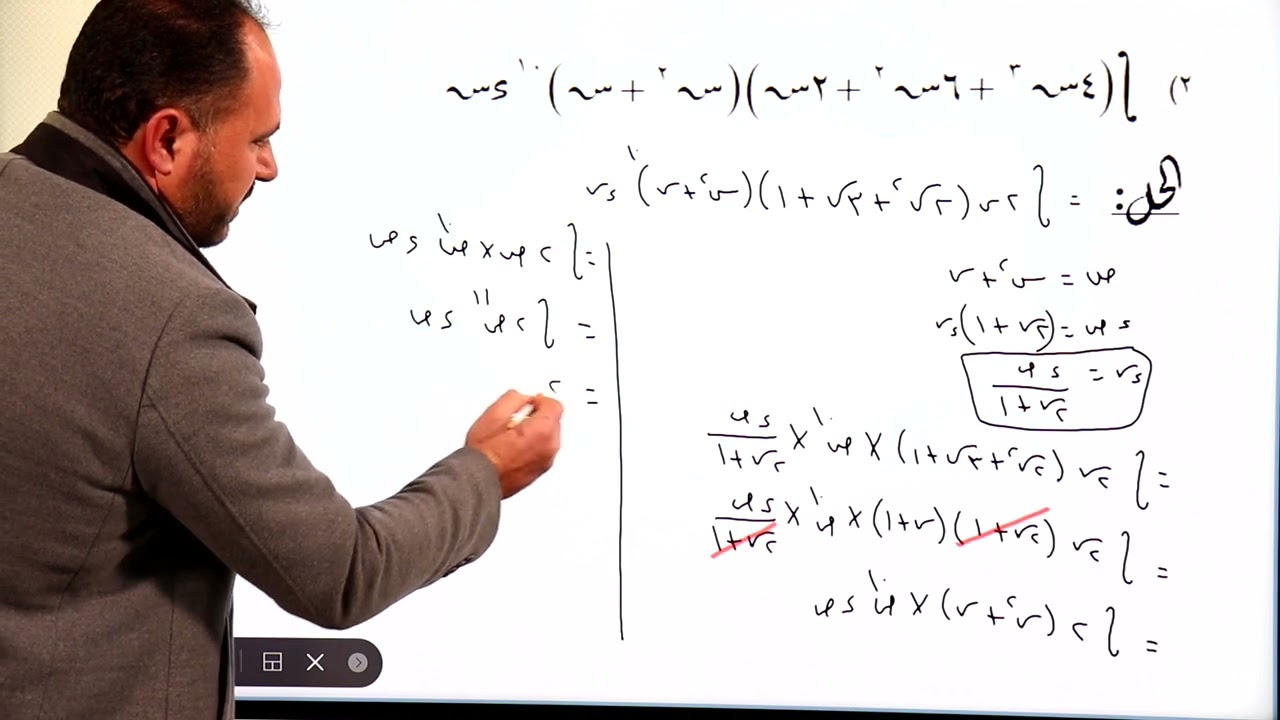 ٢) ∫(٤س٣ + ٦س٢ + ٢س)(س٢ + س)١٠ ءس
الحل: = ∫٢س(٢س٢ + ٣س + ١)(س٢ + س)١٠ ءس
ص = س٢ + س
ء ص = (٢س + ١) ءس
ءس = ء ص / ٢س + ١
= ∫ ٢س (٢س٢ + ٣س + ١) × ص١٠ × ء ص / ٢س + ١
= ∫ ٢س (٢س + ١)(س + ١) × ص١٠ × ء ص / ٢س + ١
= ∫ ٢ (س٢ + س) × ص١٠ ء ص
= ∫ ٢ ص × ص١٠ ء ص
= ∫ ٢ص١١ ء ص
= ٢